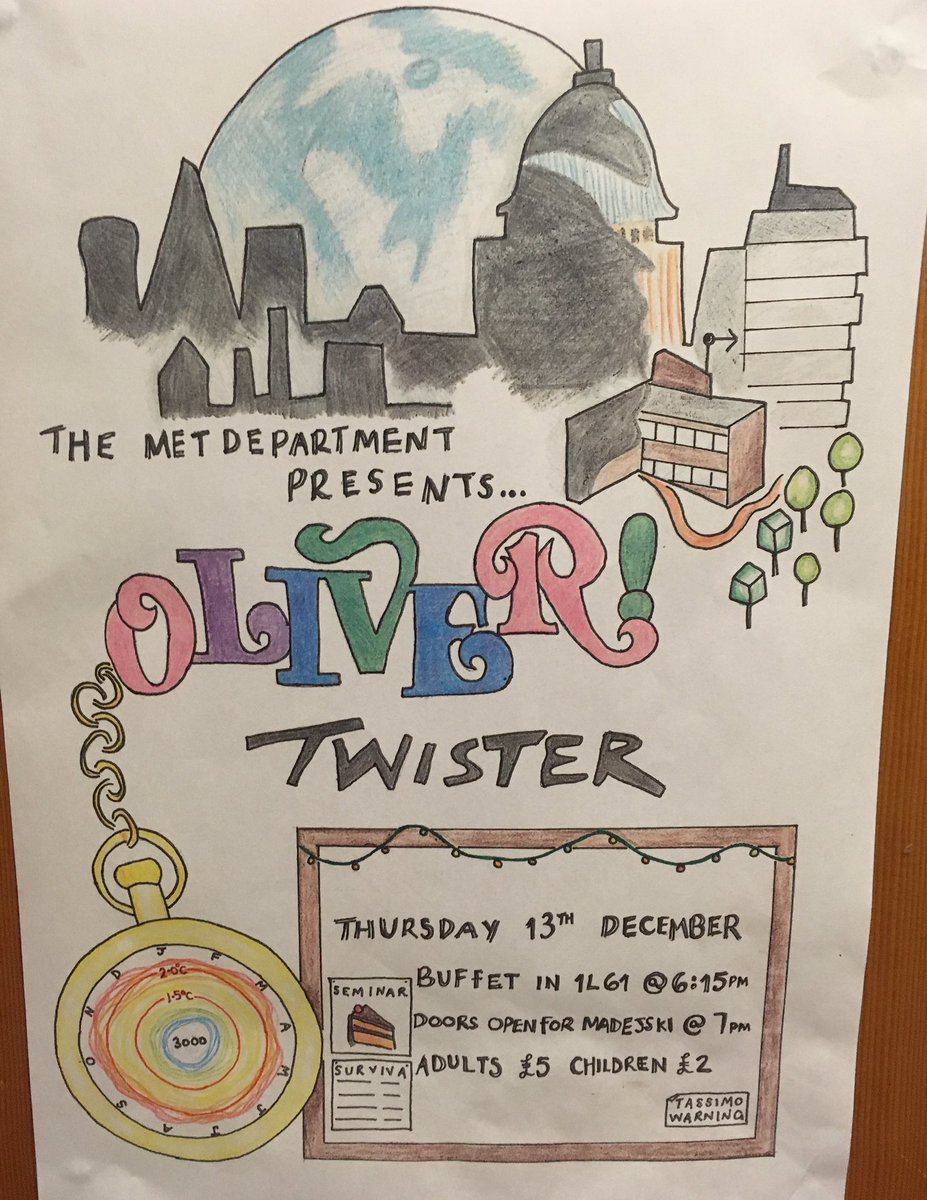 THE MET DEPARTMENT
PRESENTS...
OLIVER!
TWISTER
THURSDAY 13TH DECEMBER
BUFFET IN 1L61 @ 6:15PM
DOORS OPEN FOR MADEJSKI @ 7PM
ADULTS £5 CHILDREN £2
SEMINAR
SURVIVA
TASSIMO
WARNING
J F M A M J J A S O N D
2.0°C
1.5°C
3000